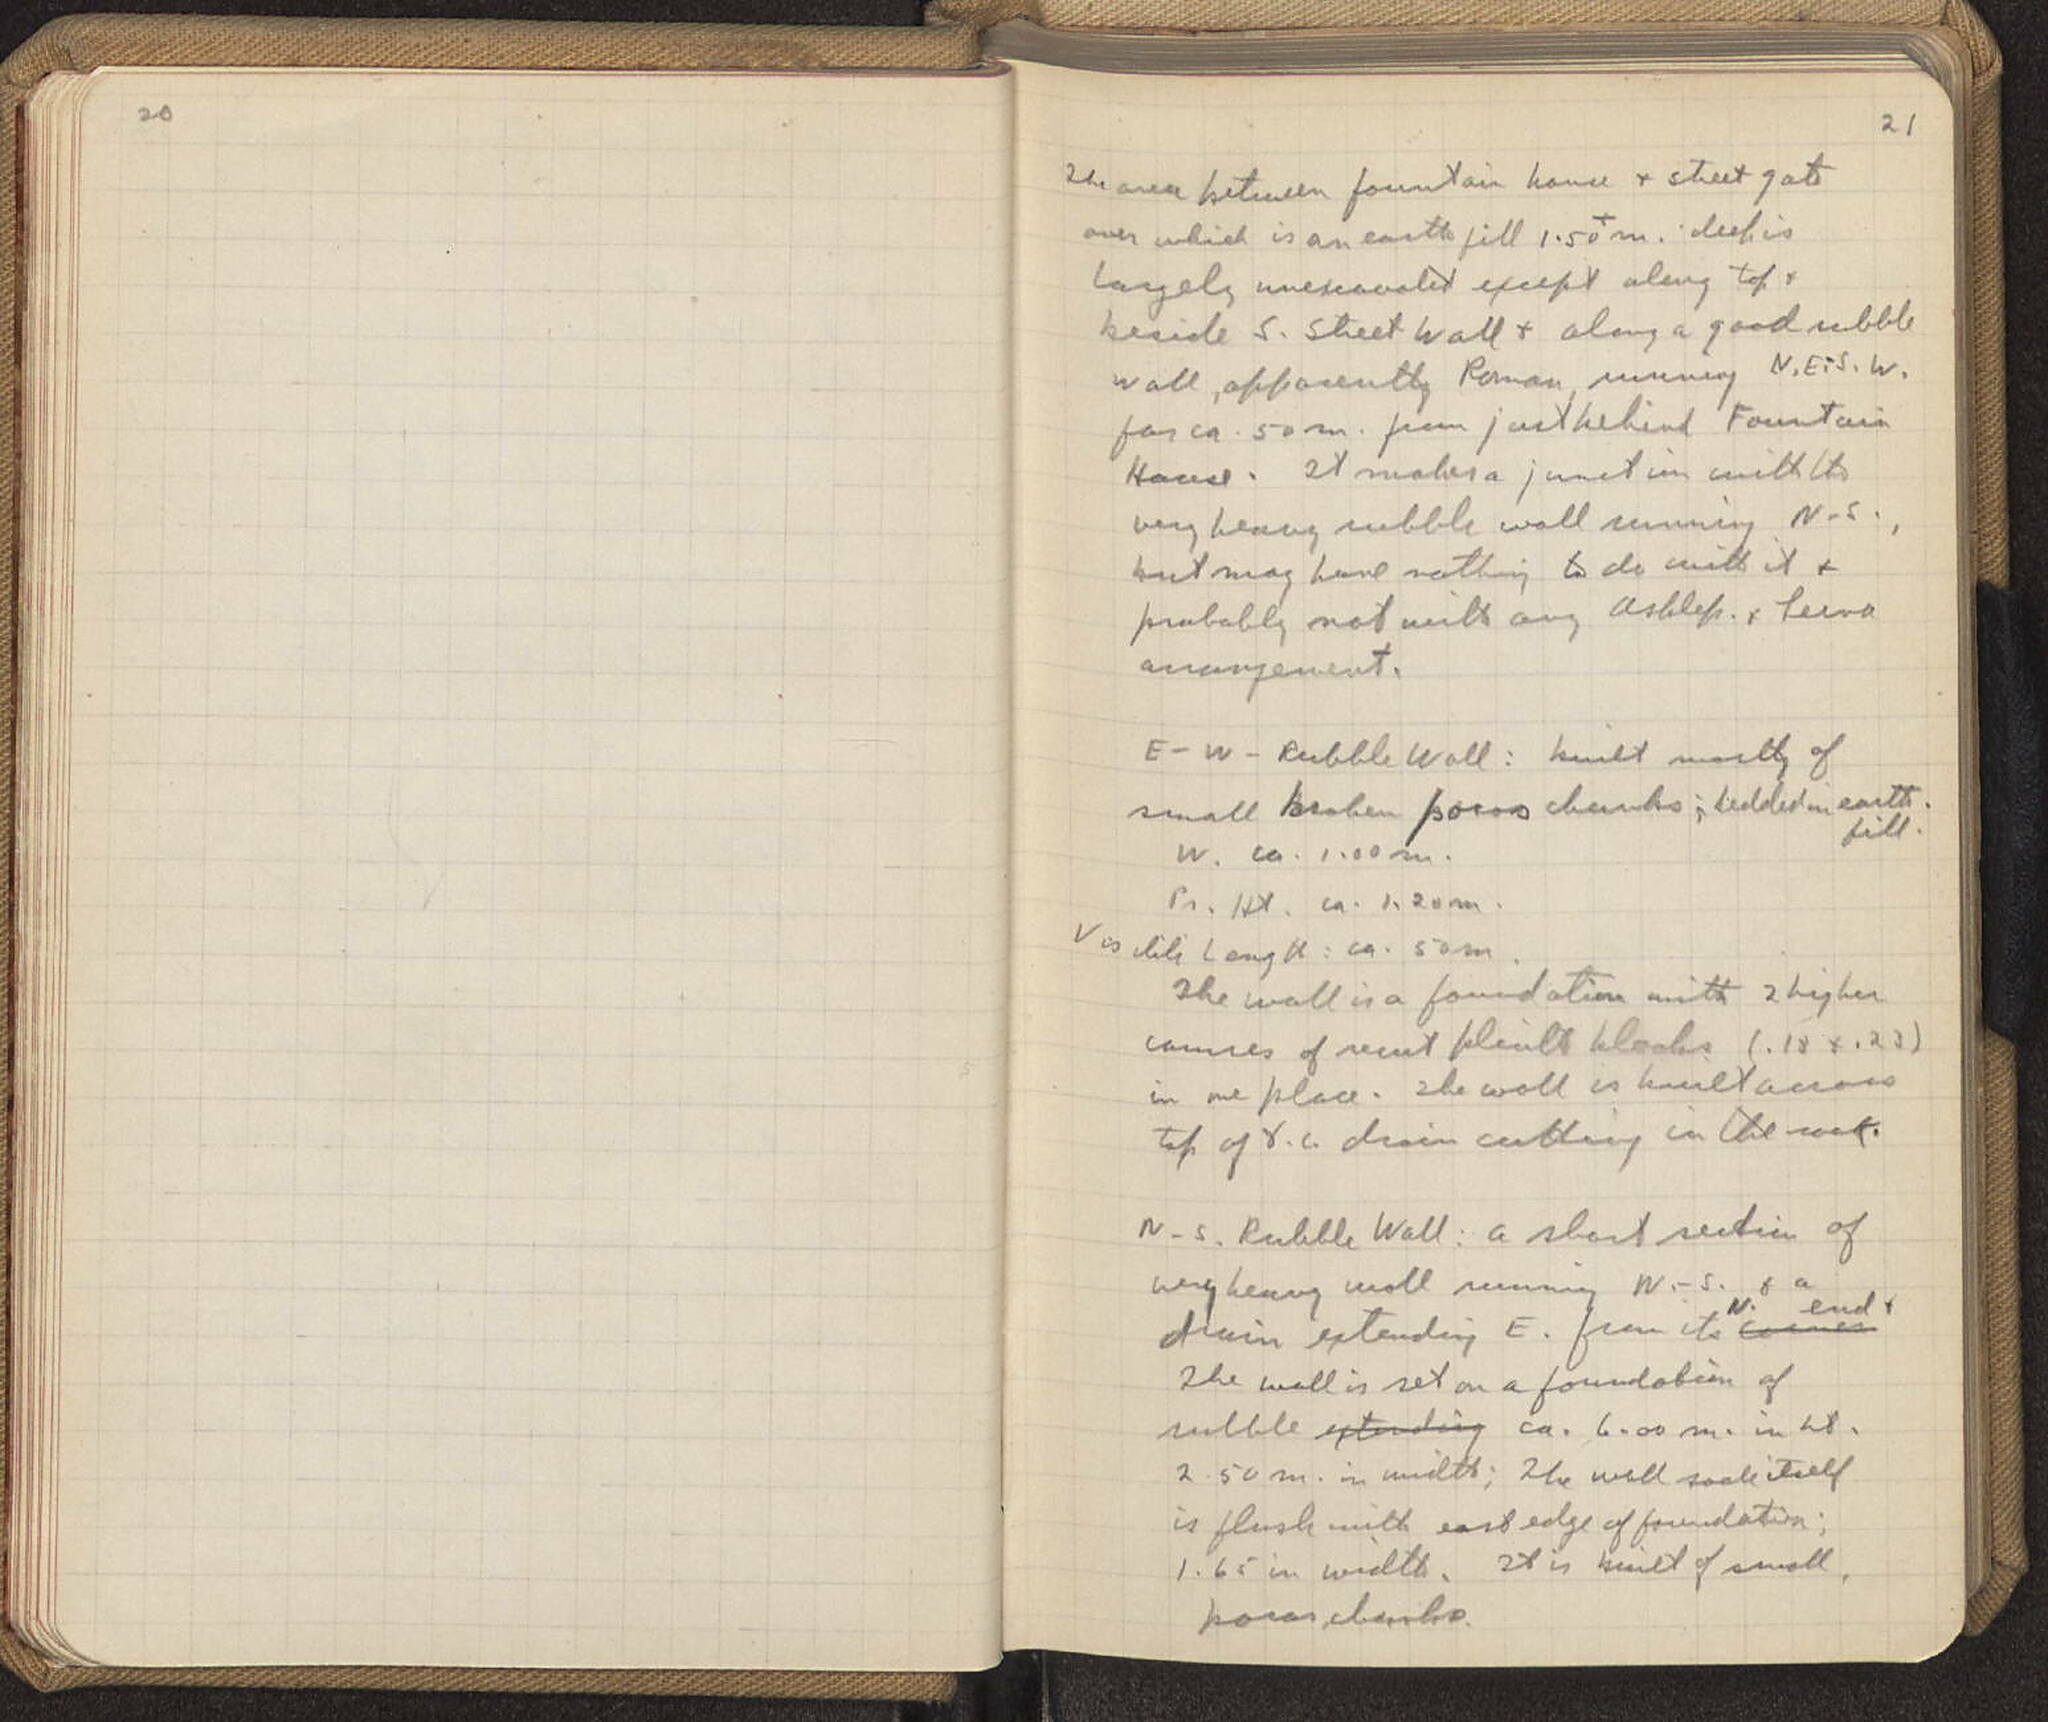 20
21
The area between fountain house + street gate
over which is an earth fill 1.50± m. deep is
largely unexcavated except along top +
beside S. Street Wall + along a good rubble
wall, apparently Roman, running N.E.-S.W.
for ca. 50 m. from just behind Fountain
House. It makes a junction with the
very heavy rubble wall running N-S.,
but may have nothing to do with it +
probably not with any Asklep. + Lerna
arrangement.
E-W- Rubble Wall: built mostly of
small broken poros chunks; bedded in earth
fill.
W. ca. 1.00 m.
Pr. Ht. ca. 1.20 m.
Visible Length: ca. 50 m.
The wall is a foundation with 2 higher
courses of recut plinth blocks (.18 x .23)
in one place. The wall is built across
top of r.c. drain cutting in the rock.
N-S. Rubble Wall: a short section of
very heavy wall running N.-S. & a
drain extending E. from its corner N. end +
The wall is set on a foundation of
rubble extending ca. 6.00 m. in ht.
2.50 m. in width; The wall itself
is flush with east edge of foundation;
1.65 in width. It is built of small
poros chunks.